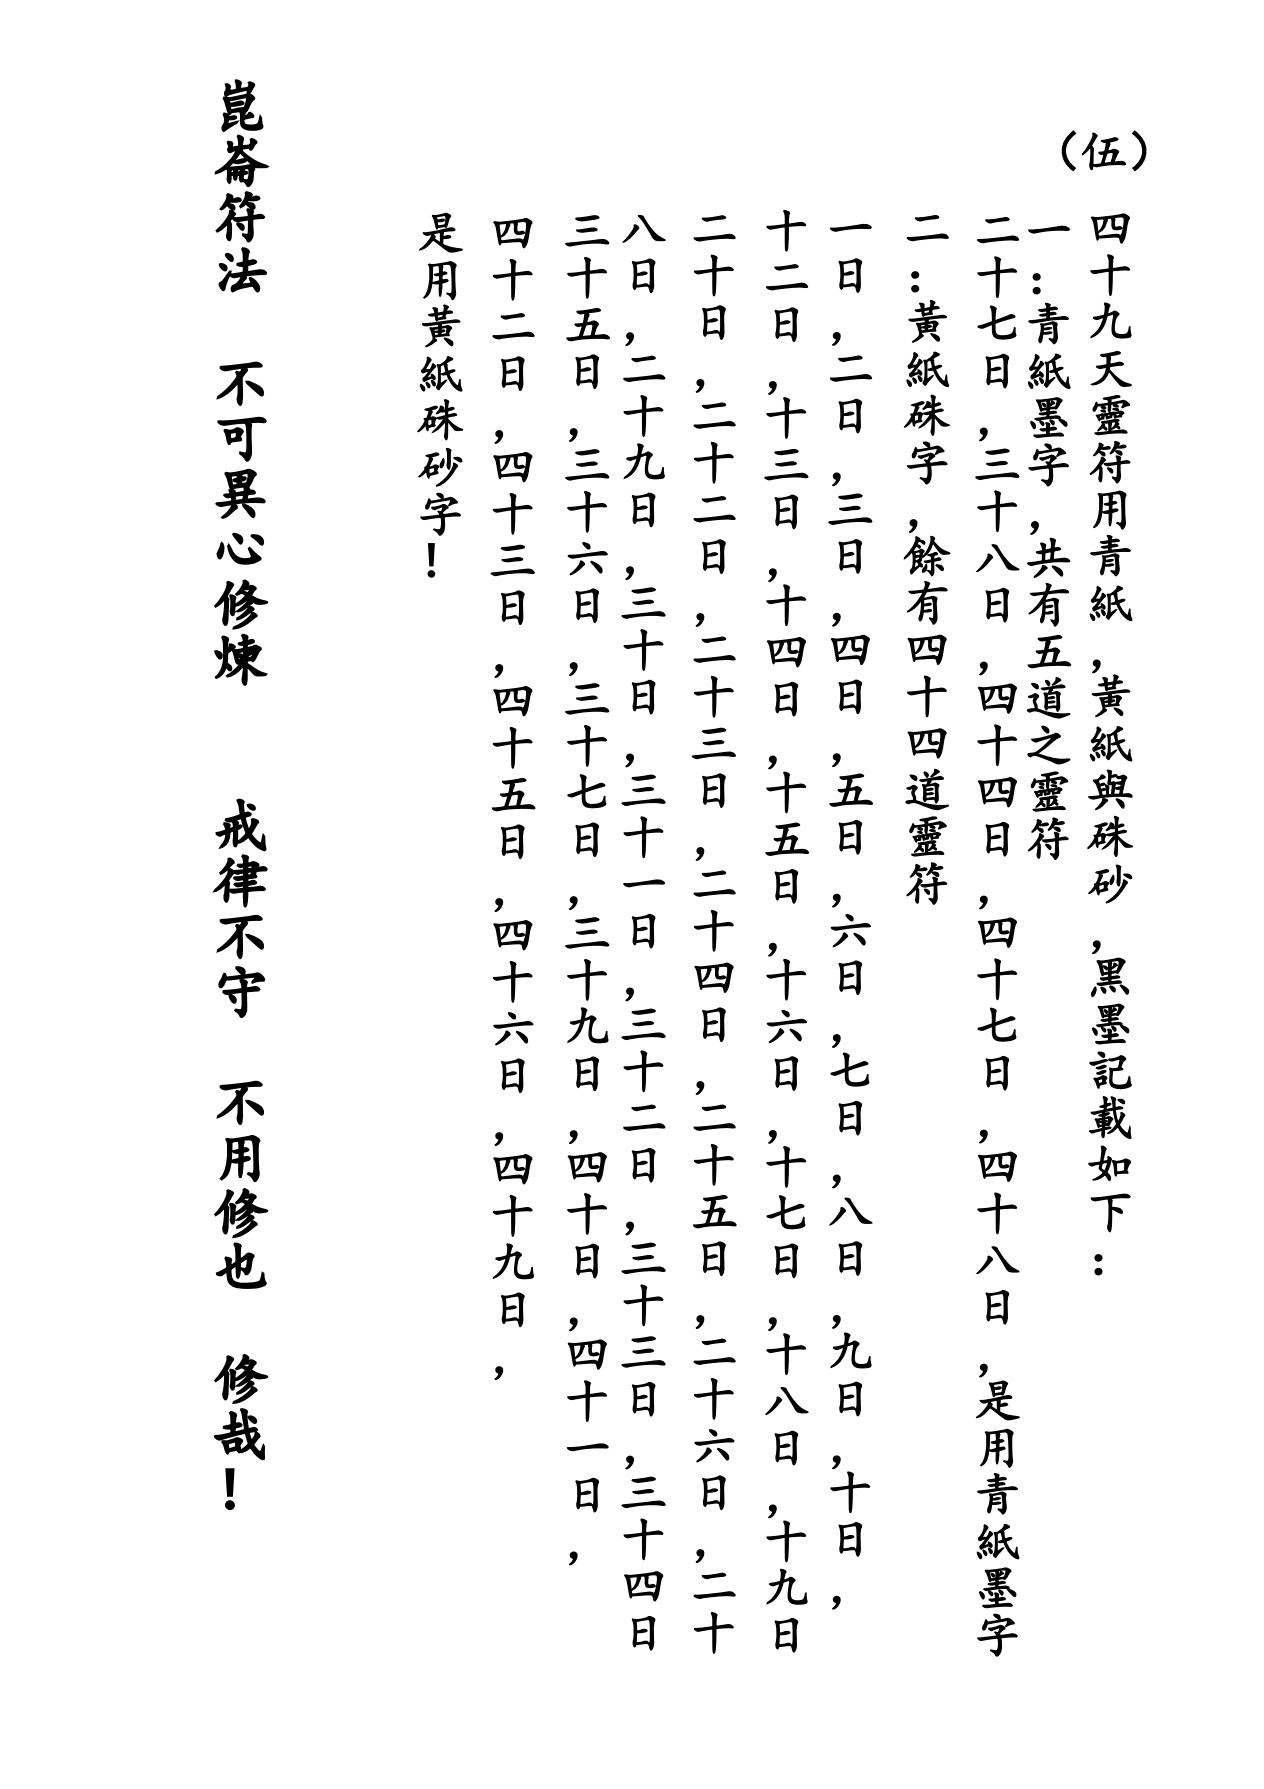 （伍）
四十九天靈符用青紙，黃紙與硃砂，黑墨記載如下：
一：青紙墨字，共有五道之靈符
二十七日，三十八日，四十四日，四十七日，四十八日，是用青紙墨字
二：黃紙硃字，餘有四十四道靈符
一日，二日，三日，四日，五日，六日，七日，八日，九日，十日，
十二日，十三日，十四日，十五日，十六日，十七日，十八日，十九日
二十日，二十二日，二十三日，二十四日，二十五日，二十六日，二十
八日，二十九日，三十日，三十一日，三十二日，三十三日，三十四日
三十五日，三十六日，三十七日，三十九日，四十日，四十一日，
四十二日，四十三日，四十五日，四十六日，四十九日，
是用黃紙硃砂字！
崑崙符法　不可異心修煉　戒律不守　不用修也　修哉！